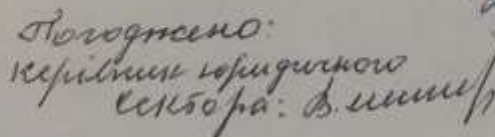 Погоджено:
керівник юридичного
сектора: В.